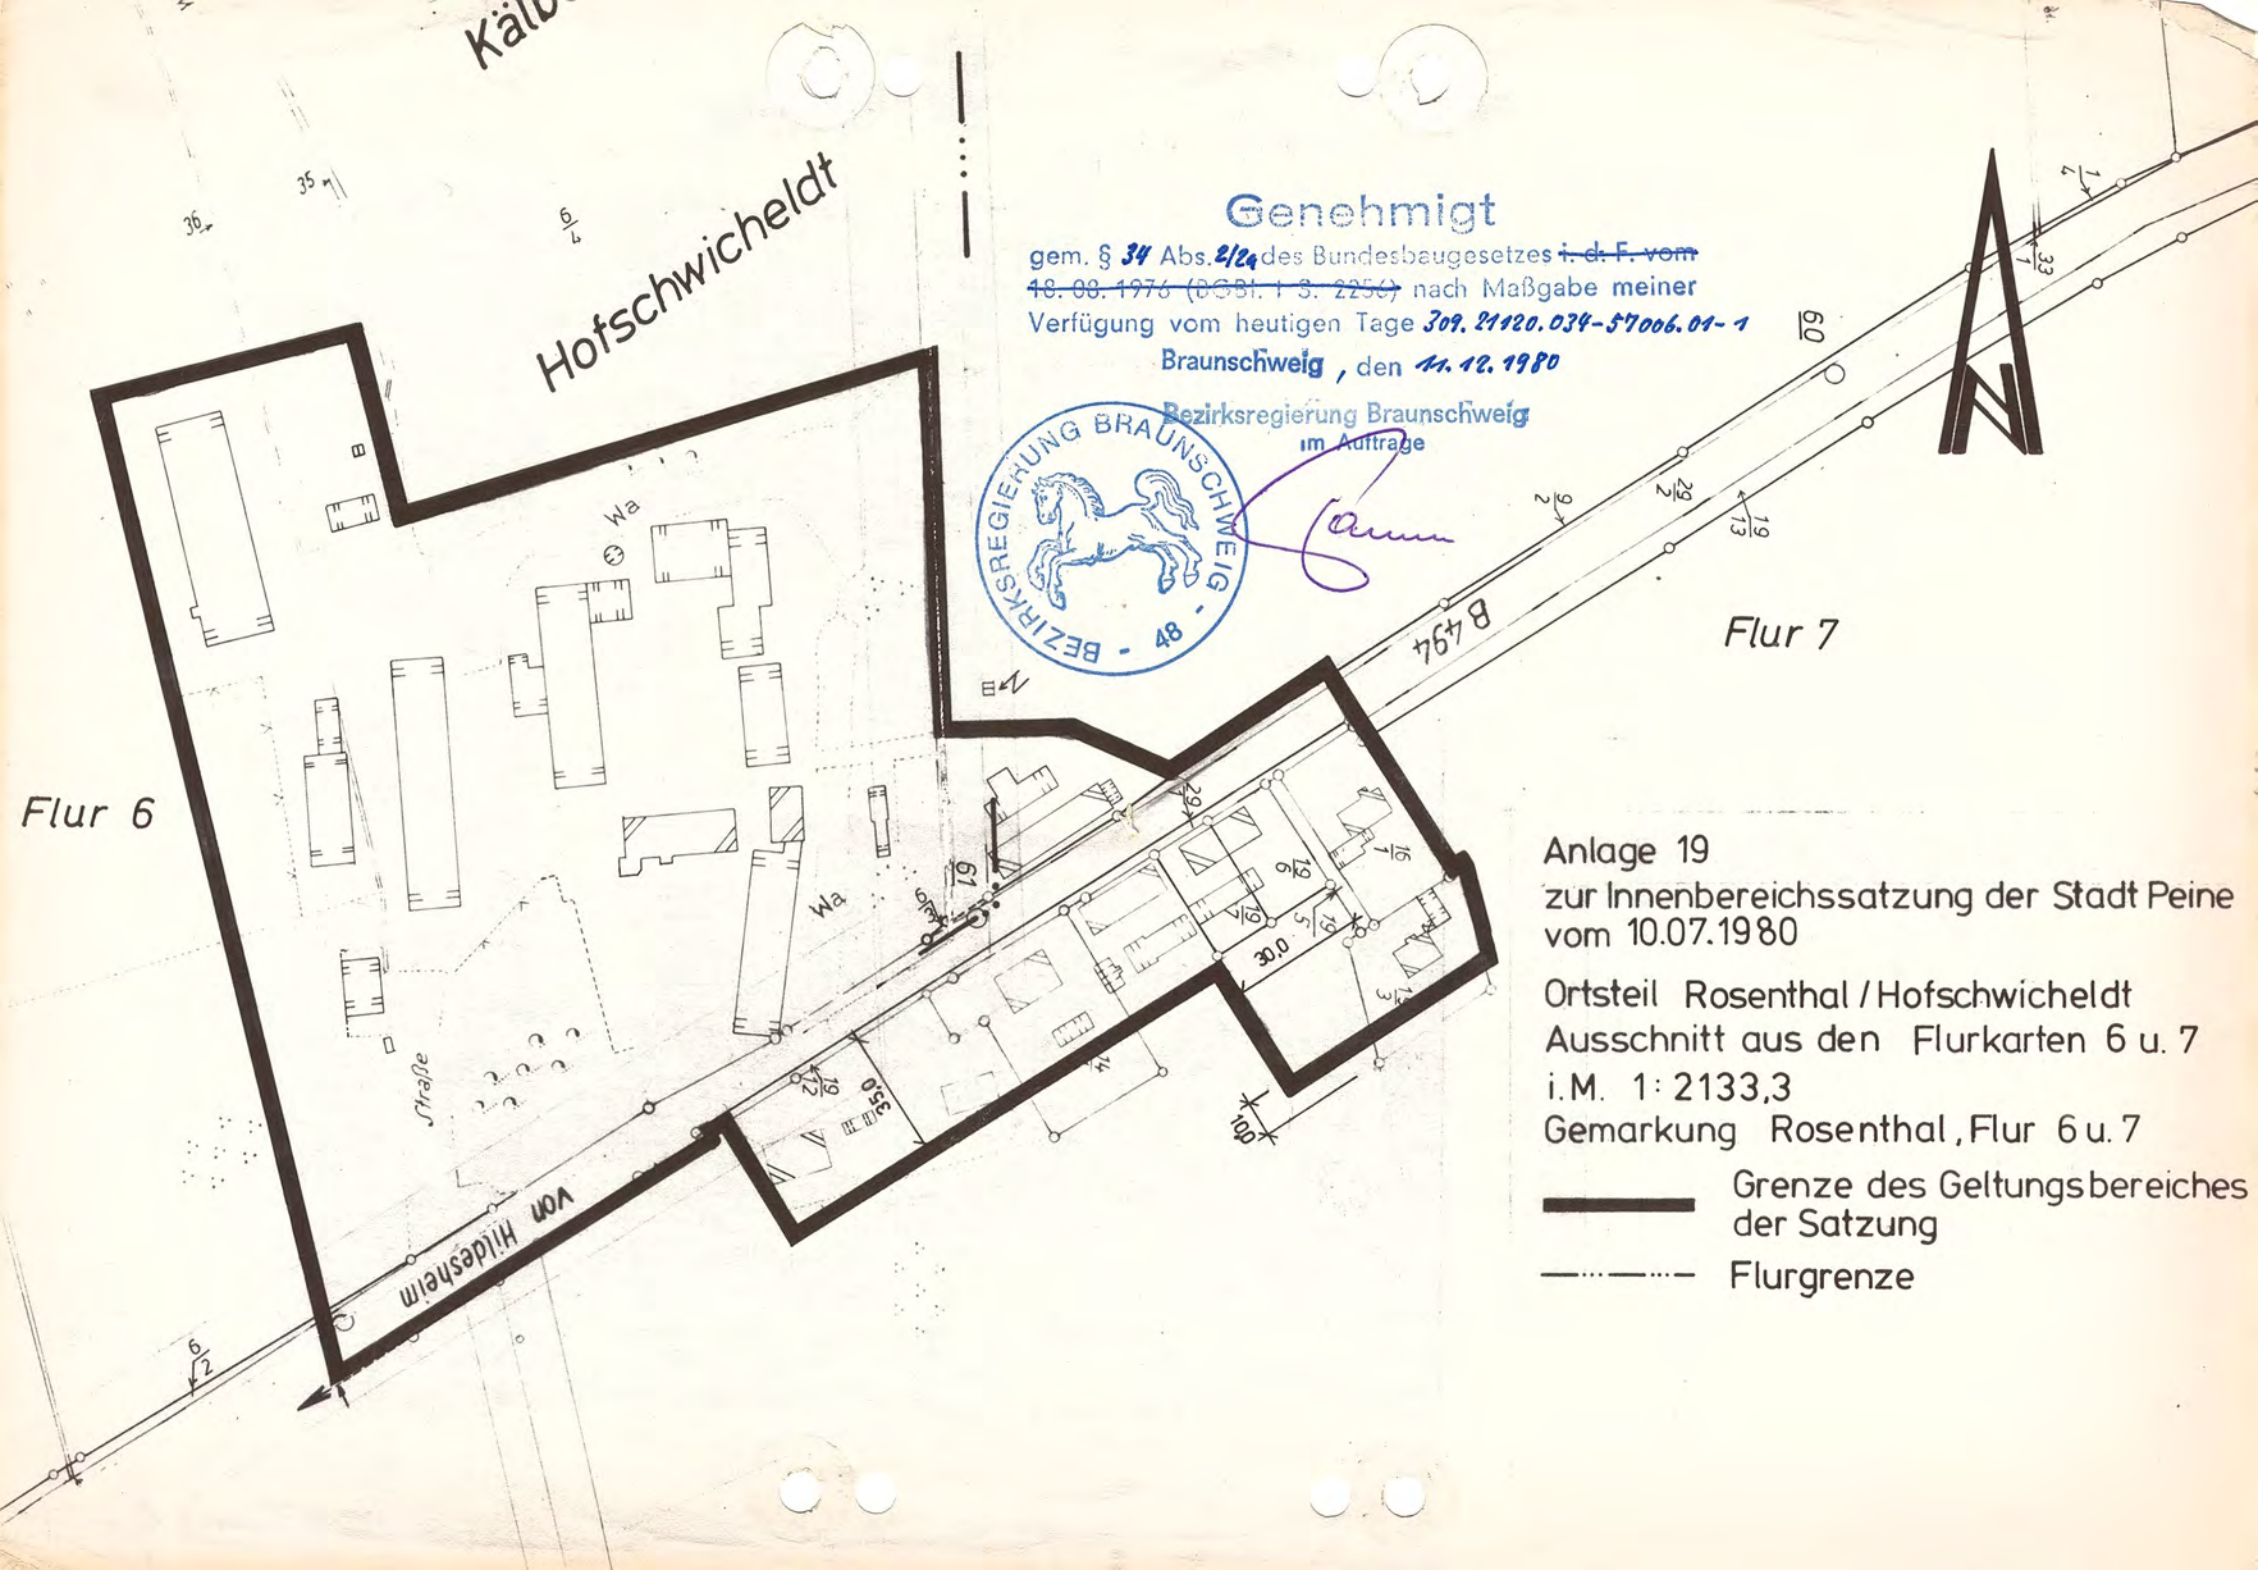 Hofschwicheldt
36
35
6/4
Genehmigt
gem. § 34 Abs. 2/2a des Bundesbaugesetzes i. d. F. vom
18. 08. 1976 (BGBl. I S. 2256) nach Maßgabe meiner
Verfügung vom heutigen Tage 309.21120.034-57006.01-1
Braunschweig, den 11.12.1980
Bezirksregierung Braunschweig
im Auftrage
BEZIRKSREGIERUNG BRAUNSCHWEIG - 48 -
1/4
33/1
60
9/2
29/2
19/13
B 494
Flur 7
Wa
Flur 6
Wa
61
29
16/1
19/6
19/7
19/5
30,0
19/12
35,0
14
10,0
Straße
von Hildesheim
6/2
Anlage 19
zur Innenbereichssatzung der Stadt Peine
vom 10.07.1980
Ortsteil Rosenthal / Hofschwicheldt
Ausschnitt aus den Flurkarten 6 u. 7
i.M. 1: 2133,3
Gemarkung Rosenthal, Flur 6 u. 7
Grenze des Geltungsbereiches
der Satzung
Flurgrenze